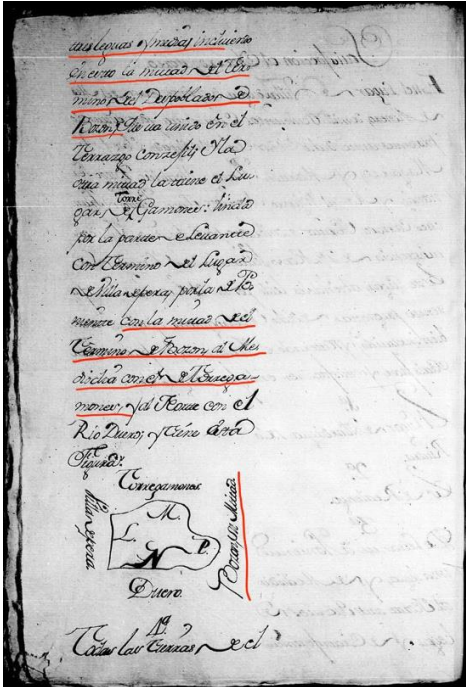 tres leguas y media; incluiendo
en esto la mitad del Ter
mino del Despoblado de
Rozon, que va unido en el
Terrazgo con este; y la
otra mitad la tiene el Lu
gar de Torre Gamones: linda
por la parte de Levante
con Termino del Lugar
de Villa depera, por la de Po
niente con la mitad del
Termino de Rozon, al Me
diodia con el de Torrega
mones, y al Norte con el
Rio Duero; y tiene esta
Figura.
Torregamones.
Villa depera
M.
L.
P.
N
Duero.
Mitad
4ª
Todas las tierras del